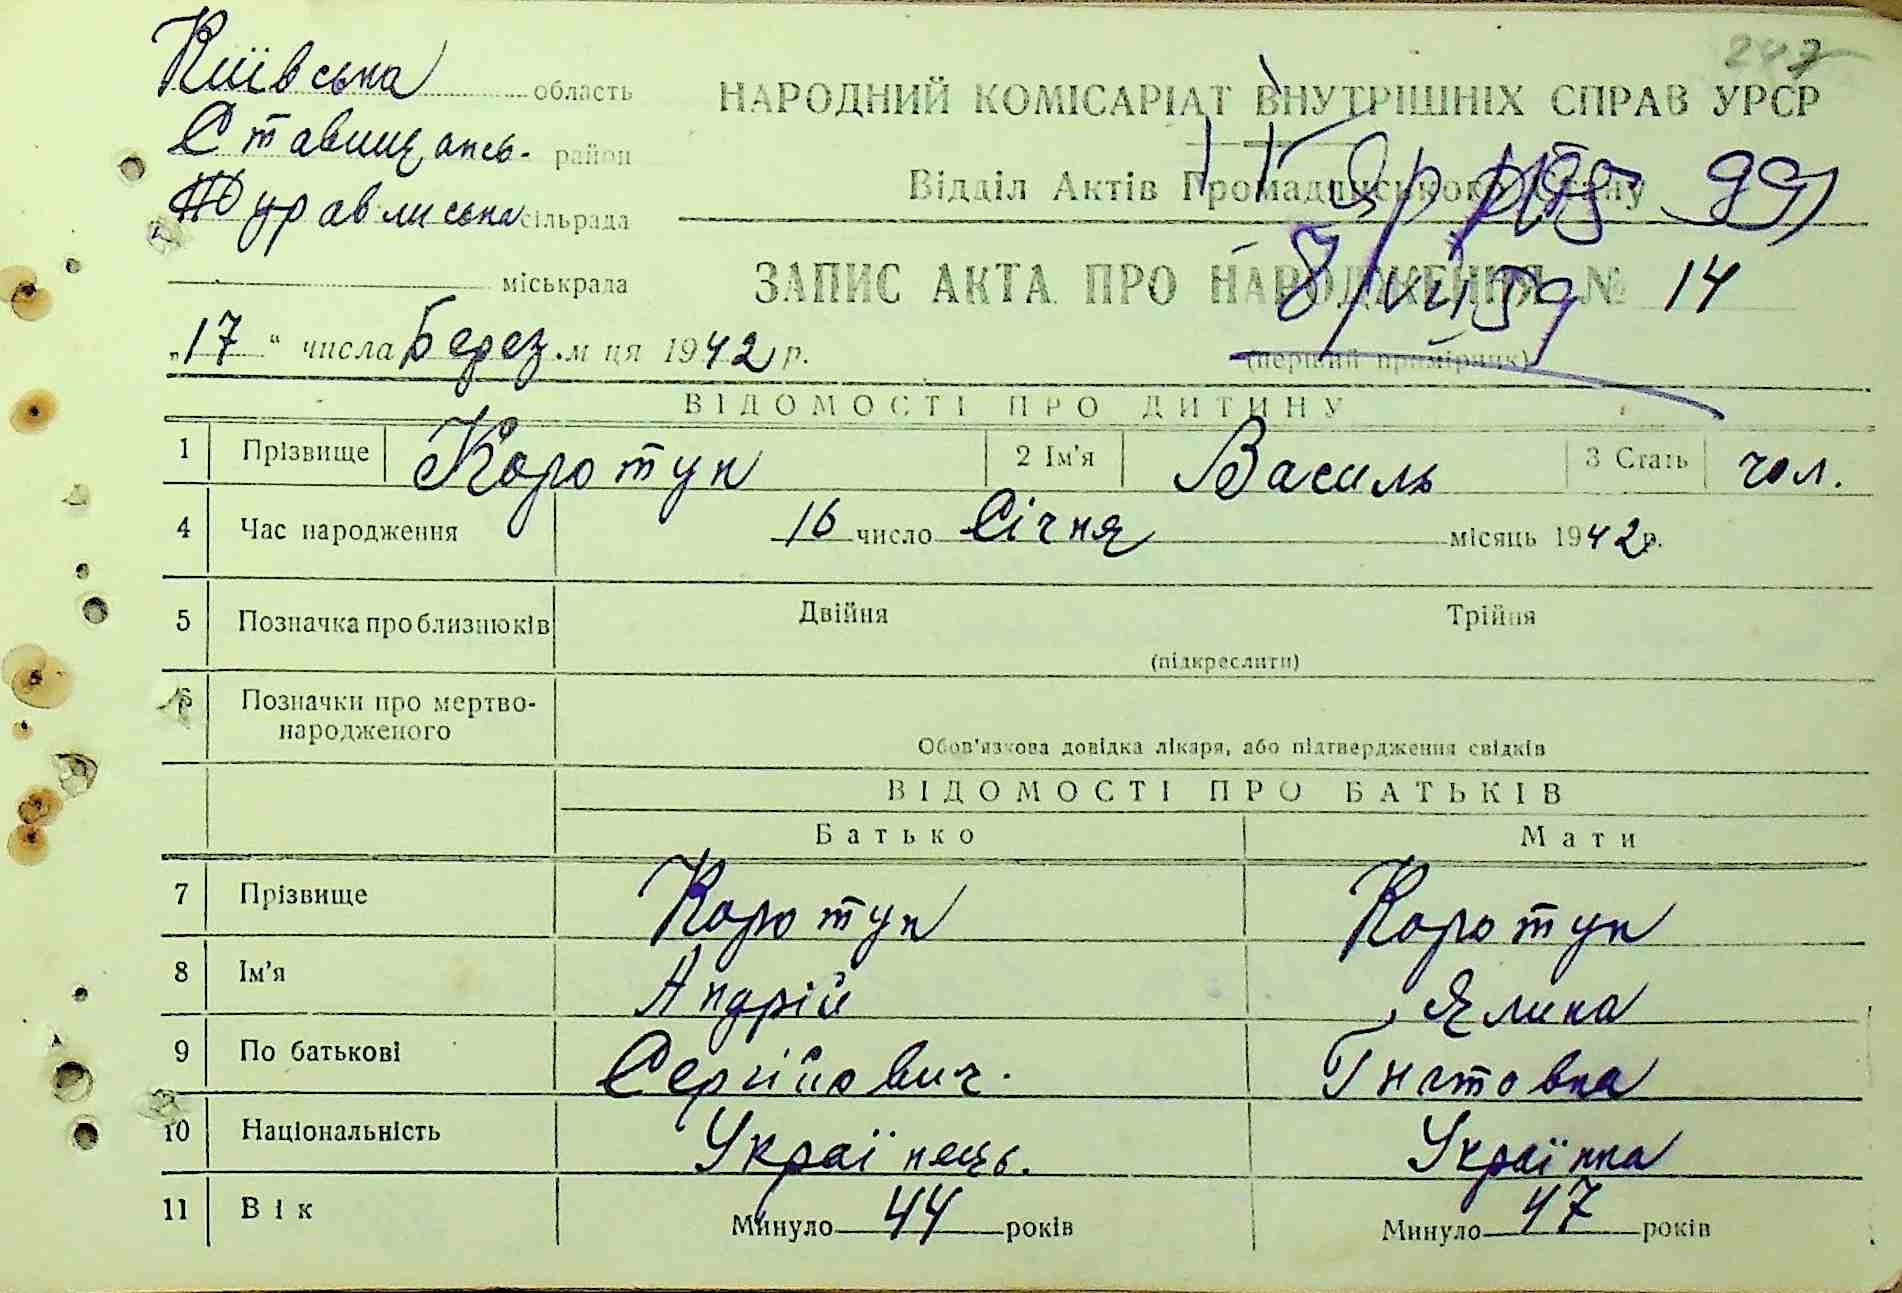 247
Київська область
Ставищансь. район
Журавлиська сільрада
міськрада
НАРОДНИЙ КОМІСАРІАТ ВНУТРІШНІХ СПРАВ УРСР
Відділ Актів Громадянського Стану
ЗАПИС АКТА ПРО НАРОДЖЕННЯ № 14
(перший примірник)
8/VII 59
„17" числа Берез. м ця 1942 р.
ВІДОМОСТІ ПРО ДИТИНУ
1 Прізвище Коротун 2 Ім'я Василь 3 Стать чол.
4 Час народження 16 число Січня місяць 1942 р.
5 Позначка про близнюків Двійня Трійня
(підкреслити)
6 Позначки про мертво-
народженого
Обов'язкова довідка лікаря, або підтвердження свідків
ВІДОМОСТІ ПРО БАТЬКІВ
Батько Мати
7 Прізвище Коротун Коротун
8 Ім'я Андрій Ялина
9 По батькові Сергійович. Гнатовна
10 Національність Українець. Українка
11 Вік Минуло 44 років Минуло 47 років